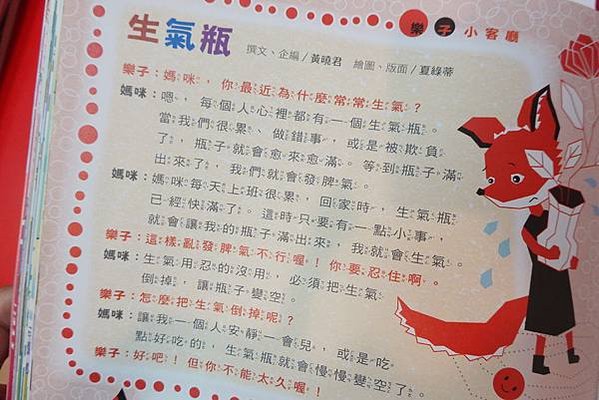 樂子小客廳
生氣瓶
撰文、企編/黃曉君 繪圖、版面/夏綠蒂
樂子：媽咪，你最近為什麼常常生氣？
媽咪：嗯，每個人心裡都有一個生氣瓶。
當我們很累、做錯事，或是被欺負
了，瓶子就會愈來愈滿。等到瓶子滿
出來了，我們就會發脾氣。
媽咪：媽咪每天上班很累，回家時，生氣瓶
已經快滿了。這時只要有一點小事，
就會讓我的瓶子滿出來，我就會生氣。
樂子：這樣亂發脾氣不行喔！你要忍住啊。
媽咪：生氣用忍的沒用，必須把生氣
倒掉，讓瓶子變空。
樂子：怎麼把生氣倒掉呢？
媽咪：讓我一個人安靜一會兒，或是吃
點好吃的，生氣瓶就會慢慢變空了。
樂子：好吧！但你不能太久喔！